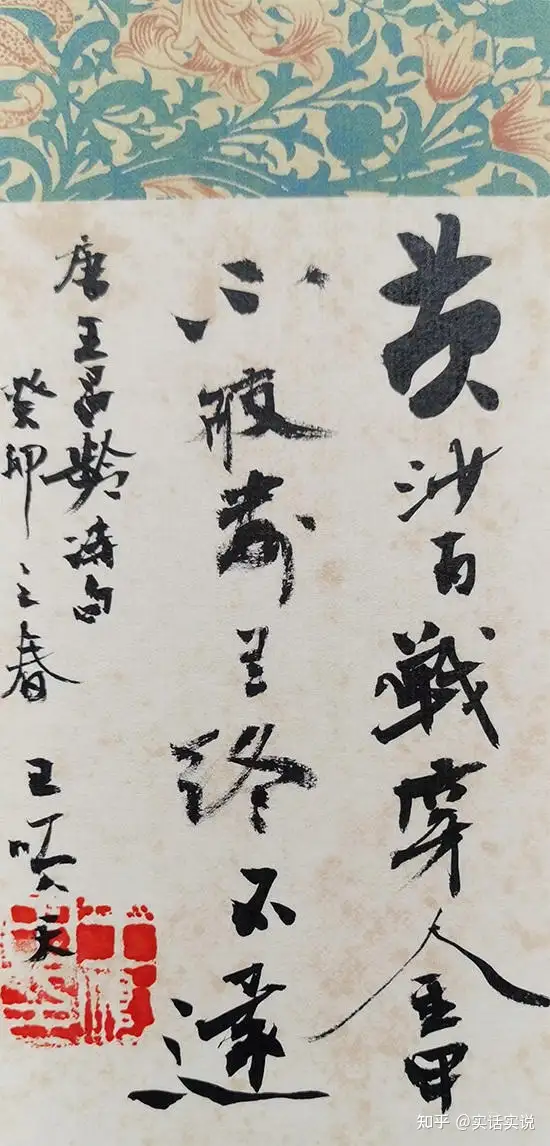 黄沙百戰穿金甲
不破楼兰终不還
唐王昌齡诗句
癸卯之春 王
知乎 @实话实说